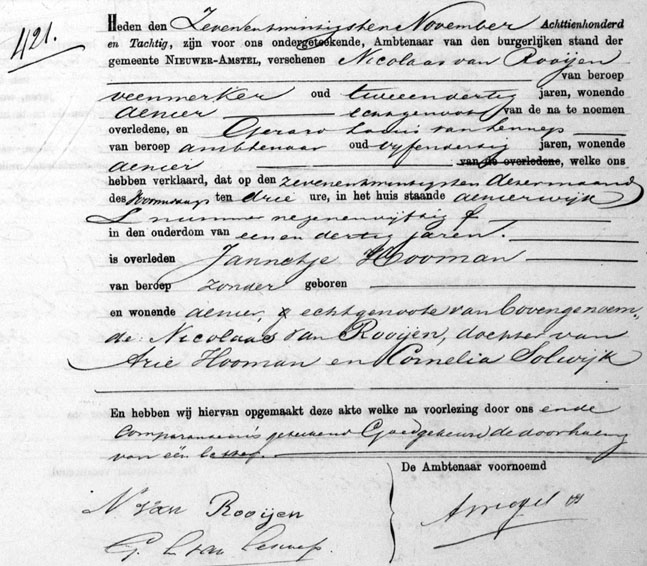 421.
Heden den Zevenentwintigsten November Achttienhonderd
en Tachtig, zijn voor ons ondergeteekende, Ambtenaar van den burgerlijken stand der
gemeente NIEUWER-AMSTEL, verschenen Nicolaas van Rooijen
van beroep
veenwerker oud tweeendertig jaren, wonende
alhier echtgenoot van de na te noemen
overledene, en Gerard Louis van Lennep
van beroep ambtenaar oud vijfendertig jaren, wonende
alhier van de overledene, welke ons
hebben verklaard, dat op den zevenentwintigsten dezer maand
des ten drie ure, in het huis staande alhier wijk
L nummer negenenvijftig
in den ouderdom van eenendertig jaren.
is overleden Jannetje Hooman
van beroep zonder geboren
en wonende alhier, echtgenoote van bovengenoem-
de Nicolaas van Rooijen, dochter van
Arie Hooman en Cornelia Solwijk
En hebben wij hiervan opgemaakt deze akte welke na voorlezing door ons en de
comparanten is geteekend Goedgekeurd de doorhaling
van één letter.
De Ambtenaar voornoemd
N van Rooijen
G. L. van Lennep